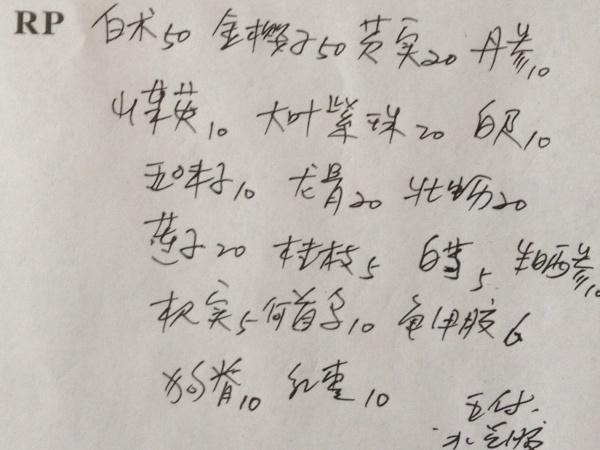 RP 白术50 金樱子50 芡实20 丹参10
山茱萸10 大叶紫珠20 白及10
五味子10 龙骨20 牡蛎20
莲子20 桂枝5 白芍5 生晒参10
枳实5 何首乌10 龟甲胶6
狗脊10 红枣10
五付
水煎服